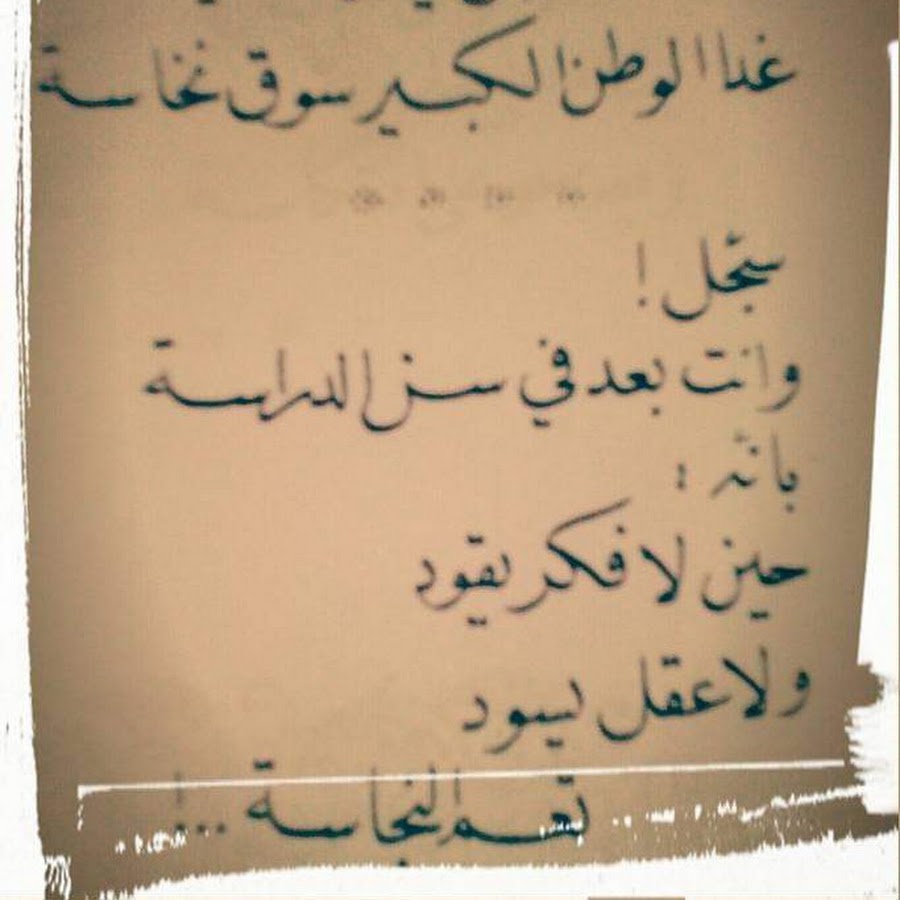 غدا الوطن الكبير سوق نخاسة
سجّل !
وانت بعد في سن الدراسة
بانّه :
حين لا فكر يقود
ولا عقل يسود
تعم النجاسة ...!